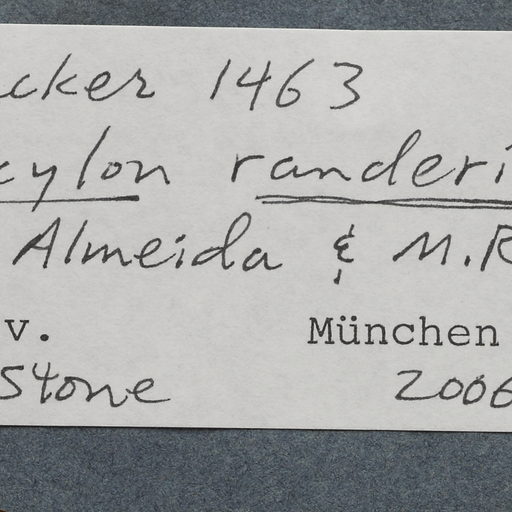 cker 1463
cylon randeri
Almeida & M.R
v. München
Stone 2006